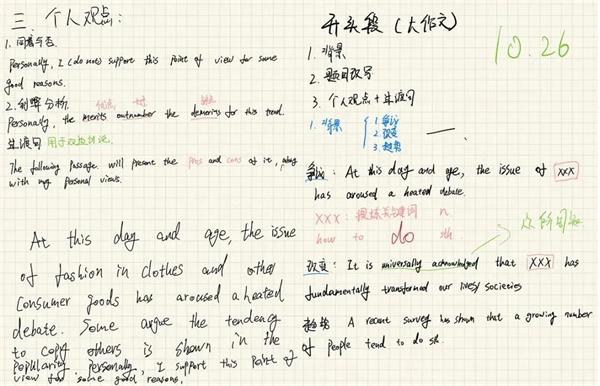 三 个人观点:
1. 同意与否
Personally, I (do not) support this point of view for some
good reasons.
2. 利弊分析.
优点 缺点
Personally, the merits outnumber the demerits for this trend.
过渡句 用于双边讨论
The following passage will present the pros and cons of it, along
with my personal views.
At this day and age, the issue
of fashion in clothes and other
consumer goods has aroused a heated
debate. Some argue the tendency
to copy others is shown in the
popularity. Personally, I support this point of
view for some good reasons.
开头段 (大作文)
10.26
1. 背景
2. 题目改写
3. 个人观点 + 过渡句
1. 背景
1. 争议
2. 改变
3. 趋势
争议: At this day and age, the issue of xxx
has aroused a heated debate.
XXX: 提炼关键词 n
how to do sth.
众所周知
改变: It is universally acknowledged that xxx has
fundamentally transformed our lives/societies
趋势 A recent survey has shown that a growing number
of people tend to do sth.